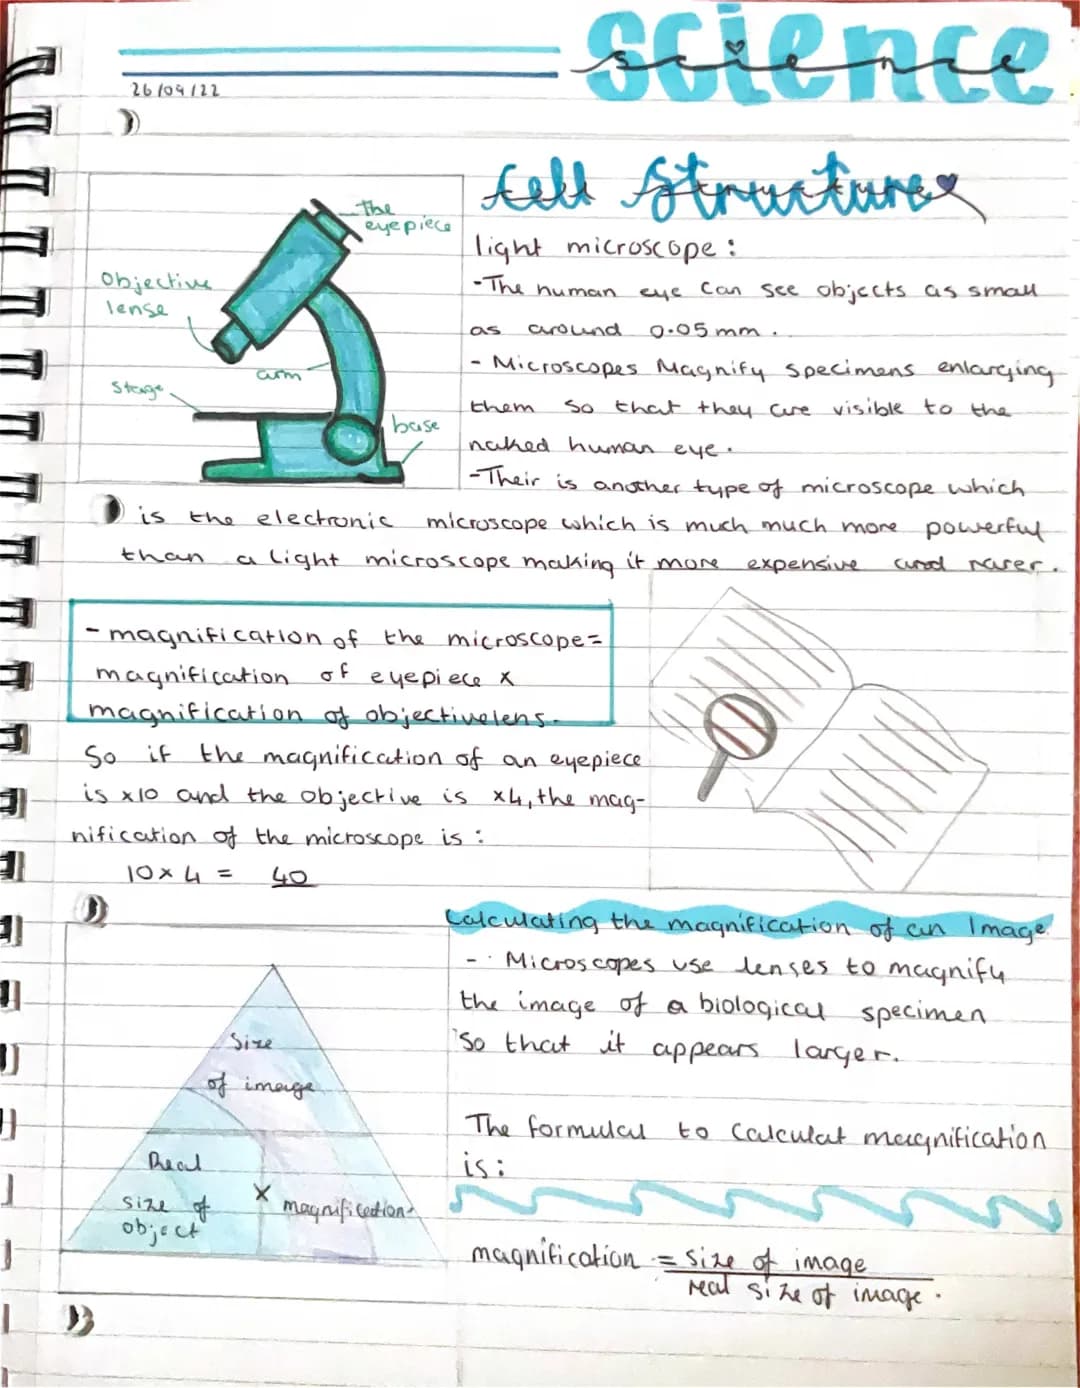 science
science
26/09/22
Cell Structure
the
eyepiece
Objective
lense
arm
Stage
base
light microscope:
-The human eye can see objects as small
as around 0.05mm.
- Microscopes Magnify specimens enlarging
them so that they are visible to the
naked human eye.
-Their is another type of microscope which
is the electronic microscope which is much much more powerful
than a light microscope making it more expensive and rarer.
- magnification of the microscope=
magnification of eyepiece x
magnification of objective lens.
So if the magnification of an eyepiece
is x10 and the objective is x4, the mag-
nification of the microscope is:
10 x 4 = 40
Calculating the magnification of an Image.
- Microscopes use lenses to magnify
the image of a biological specimen
so that it appears larger.
Size
of image
Real
size of
object
x magnification
The formulal to calculat magnification
is:
magnification = size of image
real size of image.